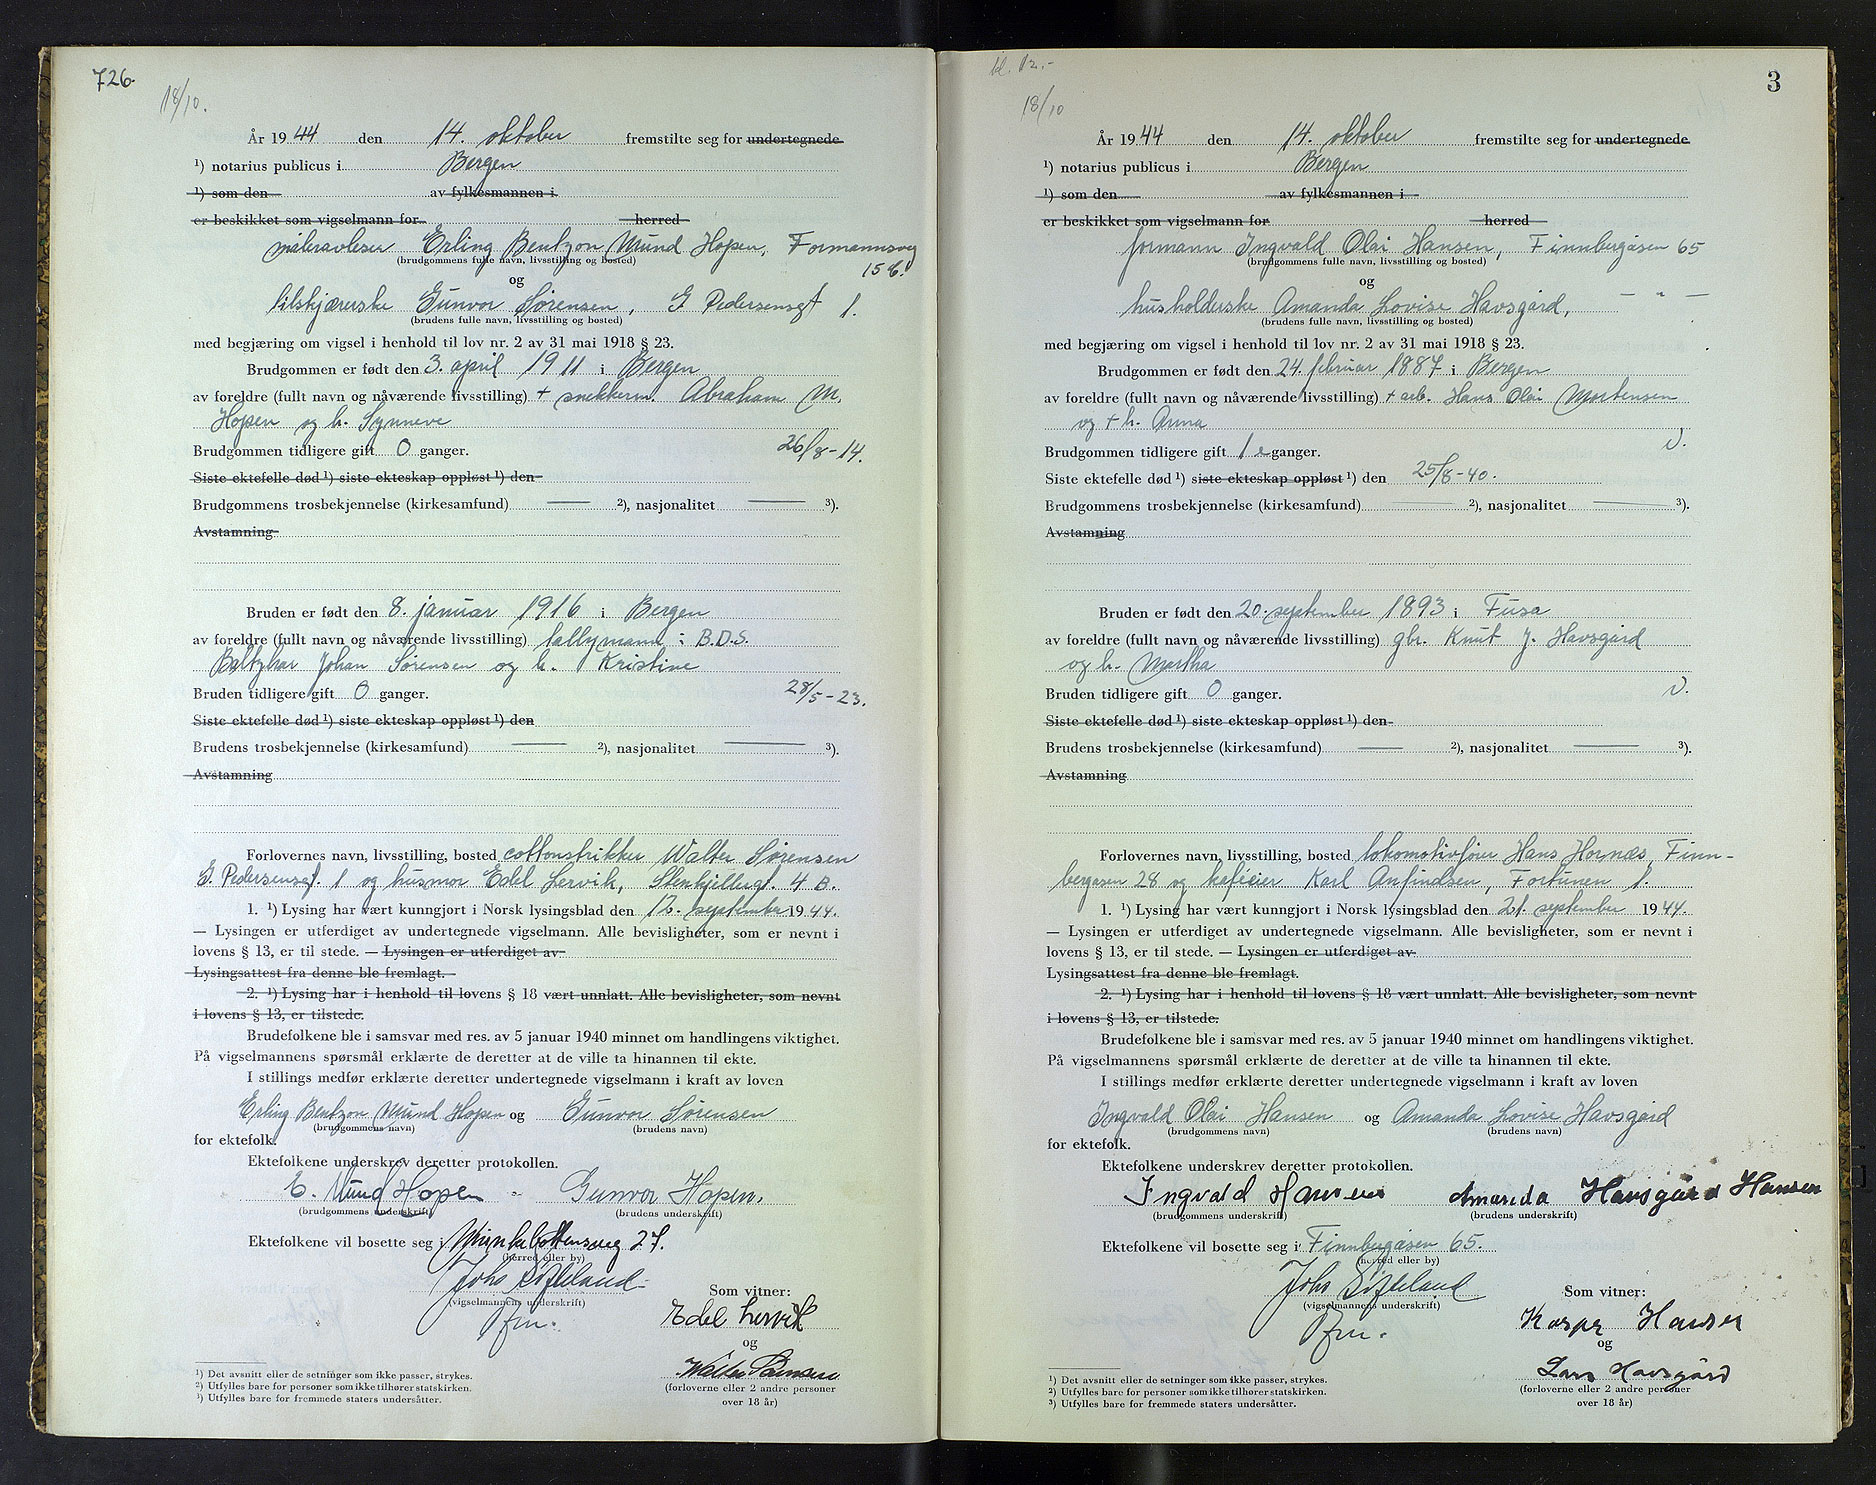 726.
18/10.
År 1944 den 14. oktober fremstilte seg for undertegnede
¹) notarius publicus i Bergen
¹) som den av fylkesmannen i
er beskikket som vigselmann for herred
måleravleser Erling Bentzon Mund Hopen, Formannsveg
(brudgommens fulle navn, livsstilling og bosted)
15 b.
og
tilskjærerske Gunvor Sørensen, G Pedersensgt 1.
(brudens fulle navn, livsstilling og bosted)
med begjæring om vigsel i henhold til lov nr. 2 av 31 mai 1918 § 23.
Brudgommen er født den 3. april 1911 i Bergen
av foreldre (fullt navn og nåværende livsstilling) + snekkerm. Abraham M.
Hopen og h. Synneve
Brudgommen tidligere gift 0 ganger. 26/8-14.
Siste ektefelle død ¹) siste ekteskap oppløst ¹) den
Brudgommens trosbekjennelse (kirkesamfund) — ²), nasjonalitet — ³).
Avstamning
Bruden er født den 8. januar 1916 i Bergen
av foreldre (fullt navn og nåværende livsstilling) tallymann i B.D.S.
Baltzhar Johan Sørensen og h. Kristine
Bruden tidligere gift 0 ganger. 28/5-23.
Siste ektefelle død ¹) siste ekteskap oppløst ¹) den
Brudens trosbekjennelse (kirkesamfund) — ²), nasjonalitet — ³).
Avstamning
Forlovernes navn, livsstilling, bosted cottonstrikker Walter Sørensen
G. Pedersensgt. 1 og husmor Edel Lervik, Stenkjellergt. 4 B.
1. ¹) Lysing har vært kunngjort i Norsk lysingsblad den 12. september 1944.
— Lysingen er utferdiget av undertegnede vigselmann. Alle bevisligheter, som er nevnt i
lovens § 13, er til stede. — Lysingen er utferdiget av
Lysingsattest fra denne ble fremlagt.
2. ¹) Lysing har i henhold til lovens § 18 vært unnlatt. Alle bevisligheter, som nevnt
i lovens § 13, er tilstede.
Brudefolkene ble i samsvar med res. av 5 januar 1940 minnet om handlingens viktighet.
På vigselmannens spørsmål erklærte de deretter at de ville ta hinannen til ekte.
I stillings medfør erklærte deretter undertegnede vigselmann i kraft av loven
Erling Bentzon Mund Hopen og Gunvor Sørensen
(brudgommens navn) (brudens navn)
for ektefolk.
Ektefolkene underskrev deretter protokollen.
E. Mund Hopen Gunvor Hopen.
(brudgommens underskrift) (brudens underskrift)
Ektefolkene vil bosette seg i Munkebottensveg 27.
(herred eller by)
Johs Søfteland
(vigselmannens underskrift)
Som vitner:
Edel Lervik
og
Walter Sørensen
(forloverne eller 2 andre personer
over 18 år)
¹) Det avsnitt eller de setninger som ikke passer, strykes.
²) Utfylles bare for personer som ikke tilhører statskirken.
³) Utfylles bare for fremmede staters undersåtter.
kl. 12.-
3
18/10
År 1944 den 14. oktober fremstilte seg for undertegnede
¹) notarius publicus i Bergen
¹) som den av fylkesmannen i
er beskikket som vigselmann for herred
formann Ingvald Olai Hansen, Finnbergåsen 65
(brudgommens fulle navn, livsstilling og bosted)
og
husholderske Amanda Lovise Havsgård, — " —
(brudens fulle navn, livsstilling og bosted)
med begjæring om vigsel i henhold til lov nr. 2 av 31 mai 1918 § 23.
Brudgommen er født den 24. februar 1887 i Bergen
av foreldre (fullt navn og nåværende livsstilling) + arb. Hans Olai Mortensen
og + h. Anna
Brudgommen tidligere gift 1 ganger.
Siste ektefelle død ¹) siste ekteskap oppløst ¹) den 25/8-40.
Brudgommens trosbekjennelse (kirkesamfund) — ²), nasjonalitet — ³).
Avstamning
Bruden er født den 20. september 1893 i Fusa
av foreldre (fullt navn og nåværende livsstilling) gbr. Knut J. Havsgård
og h. Martha
Bruden tidligere gift 0 ganger.
Siste ektefelle død ¹) siste ekteskap oppløst ¹) den
Brudens trosbekjennelse (kirkesamfund) — ²), nasjonalitet — ³).
Avstamning
Forlovernes navn, livsstilling, bosted lokomotivfører Hans Hornæs, Finn-
bergåsen 28 og kaféeier Karl Anfindsen, Fortunen 1.
1. ¹) Lysing har vært kunngjort i Norsk lysingsblad den 21. september 1944.
— Lysingen er utferdiget av undertegnede vigselmann. Alle bevisligheter, som er nevnt i
lovens § 13, er til stede. — Lysingen er utferdiget av
Lysingsattest fra denne ble fremlagt.
2. ¹) Lysing har i henhold til lovens § 18 vært unnlatt. Alle bevisligheter, som nevnt
i lovens § 13, er tilstede.
Brudefolkene ble i samsvar med res. av 5 januar 1940 minnet om handlingens viktighet.
På vigselmannens spørsmål erklærte de deretter at de ville ta hinannen til ekte.
I stillings medfør erklærte deretter undertegnede vigselmann i kraft av loven
Ingvald Olai Hansen og Amanda Lovise Havsgård
(brudgommens navn) (brudens navn)
for ektefolk.
Ektefolkene underskrev deretter protokollen.
Ingvald Hansen Amanda Havsgård Hansen
(brudgommens underskrift) (brudens underskrift)
Ektefolkene vil bosette seg i Finnbergåsen 65.
(herred eller by)
Johs Søfteland
(vigselmannens underskrift)
Som vitner:
Kaspr Hansen
og
Lars Havsgård
(forloverne eller 2 andre personer
over 18 år)
¹) Det avsnitt eller de setninger som ikke passer, strykes.
²) Utfylles bare for personer som ikke tilhører statskirken.
³) Utfylles bare for fremmede staters undersåtter.